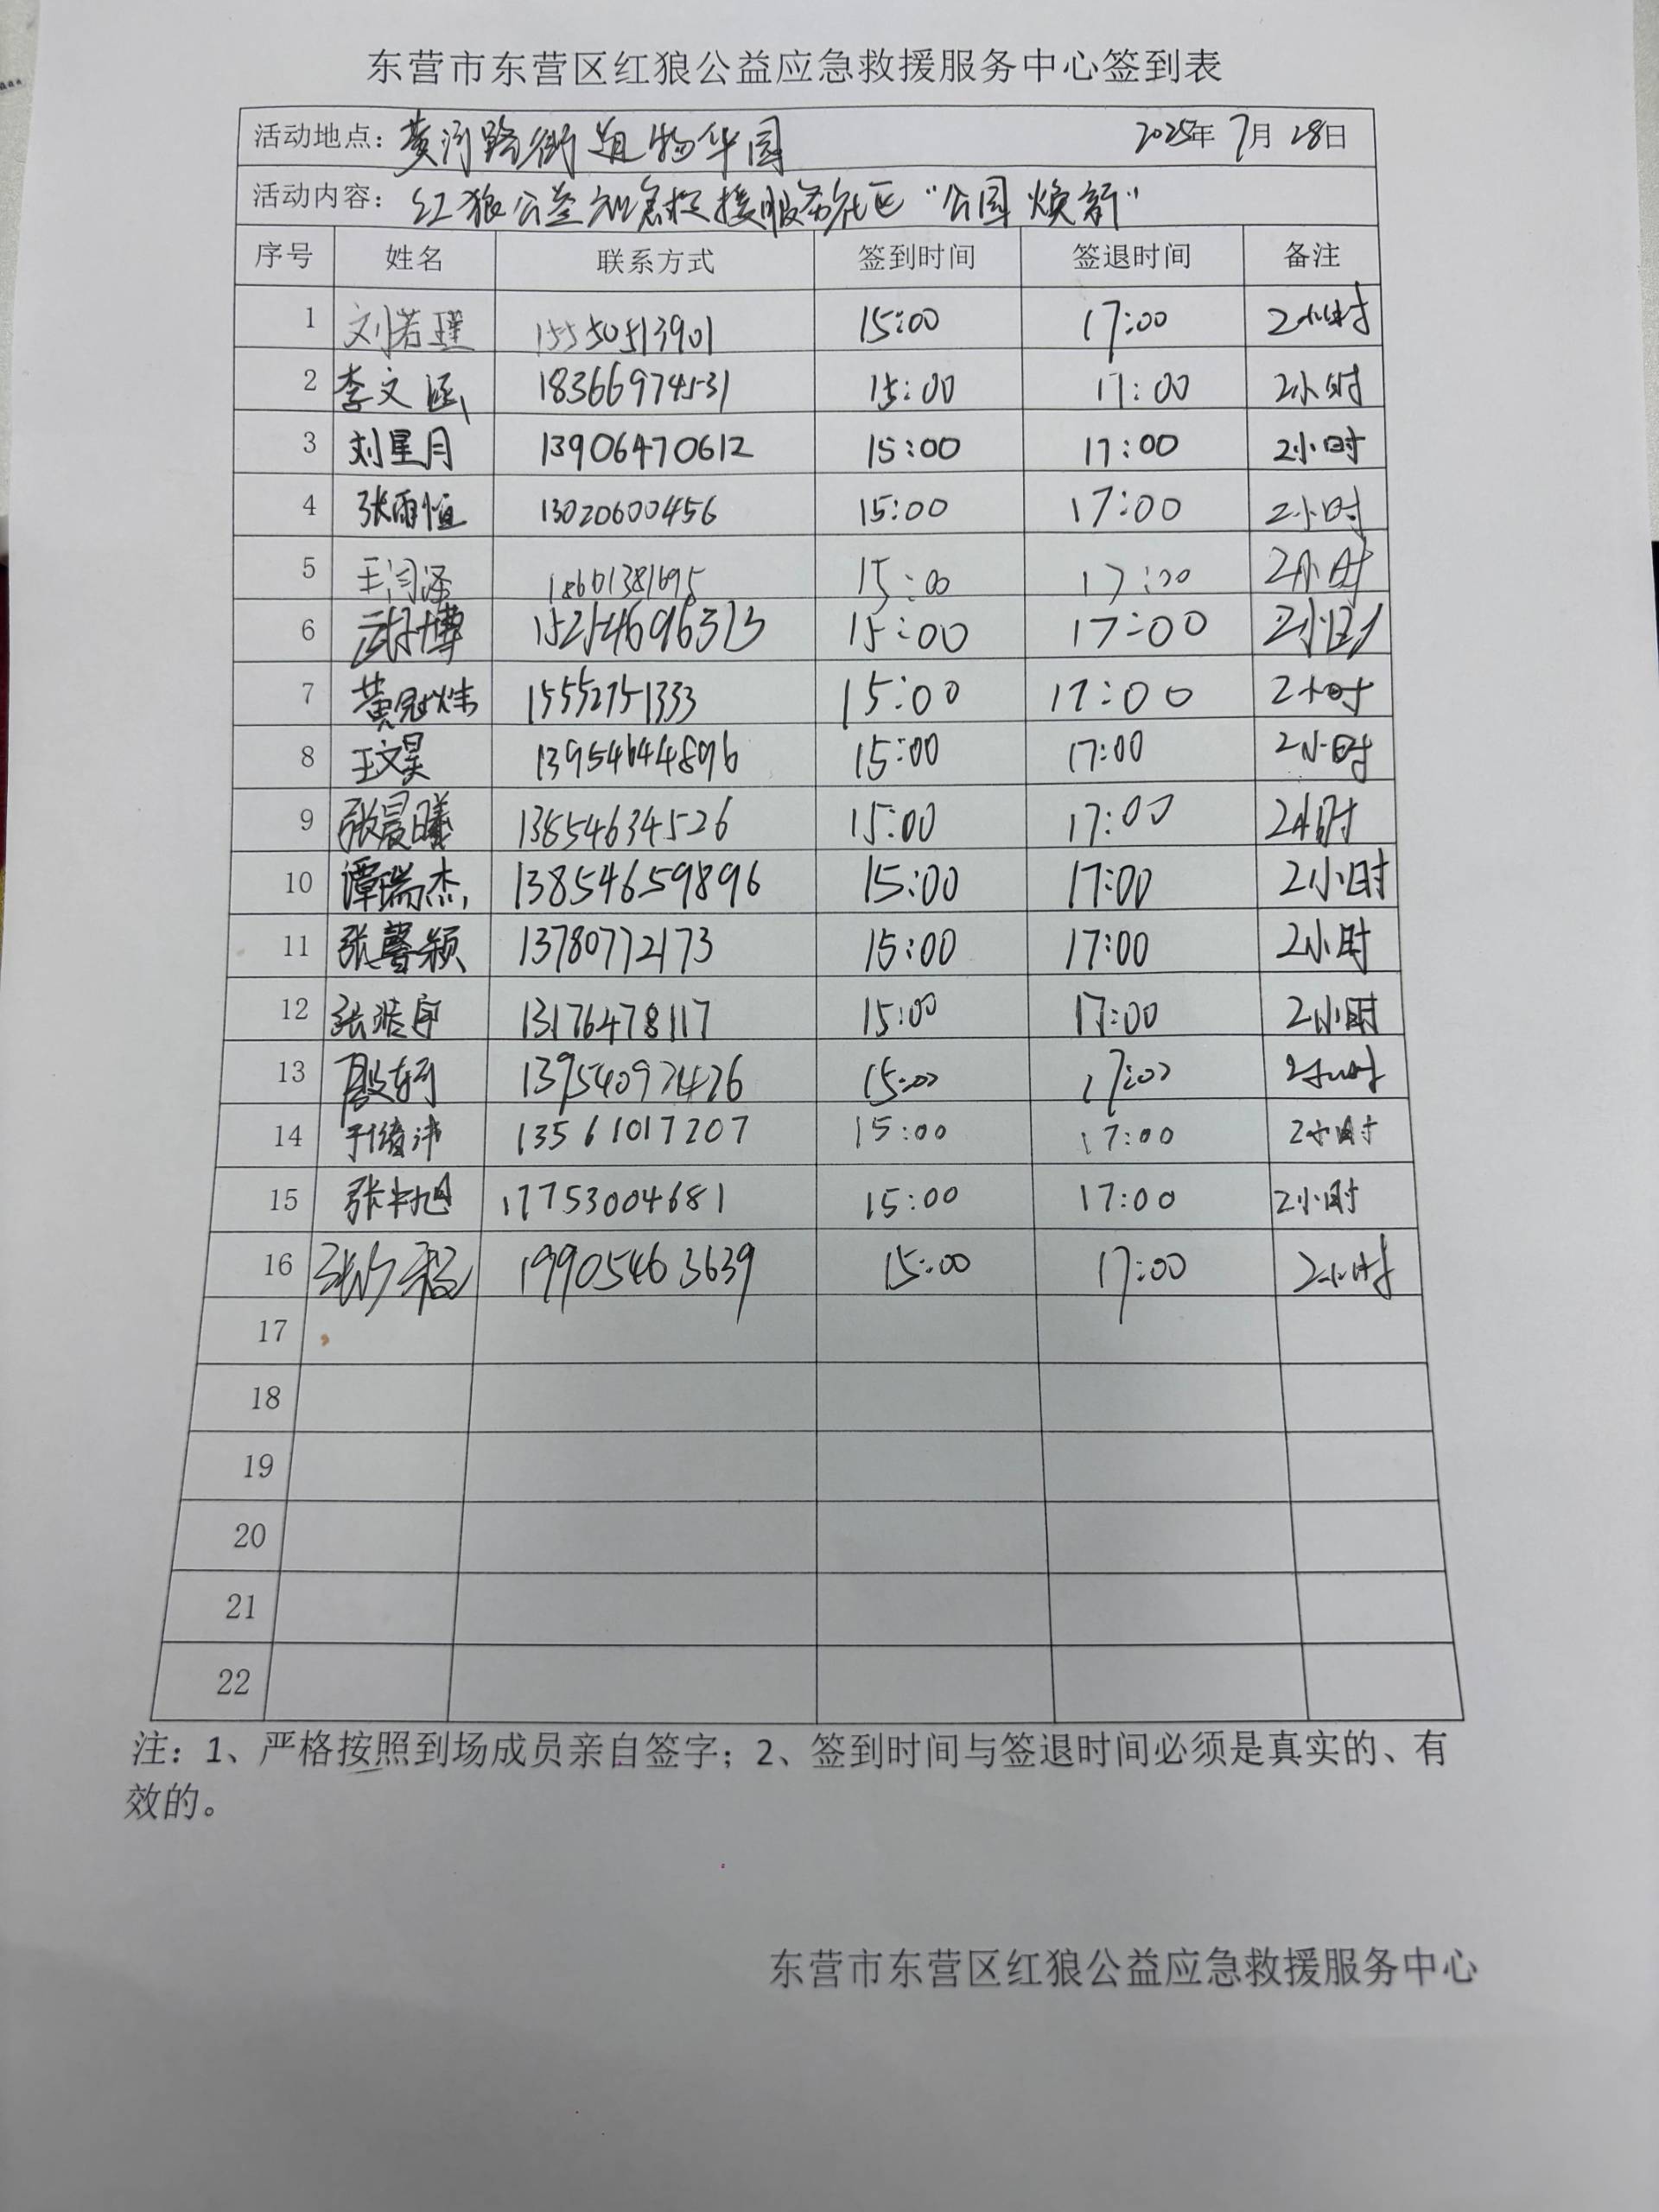 东营市东营区红狼公益应急救援服务中心签到表
活动地点：黄河路街道物华园 2025年7月28日
活动内容：红狼公益应急救援服务社区“公园焕新”
序号 姓名 联系方式 签到时间 签退时间 备注
1 刘若瑾 15550513901 15:00 17:00 2小时
2 李文涵 18366974531 15:00 17:00 2小时
3 刘星月 13906470612 15:00 17:00 2小时
4 张雨恒 13020600456 15:00 17:00 2小时
5 王闫泽 18601381695 15:00 17:00 2小时
6 15254696313 15:00 17:00 2小时
7 黄冠炜 15552751333 15:00 17:00 2小时
8 王文昊 13954644896 15:00 17:00 2小时
9 张晨曦 13854634526 15:00 17:00 2小时
10 谭瑞杰 13854659896 15:00 17:00 2小时
11 张馨颖 13780772173 15:00 17:00 2小时
12 张浩宇 13176478117 15:00 17:00 2小时
13 15:00 17:00 2小时
14 13561017207 15:00 17:00 2小时
15 17753004681 15:00 17:00 2小时
16 19905463639 15:00 17:00 2小时
17
18
19
20
21
22
注：1、严格按照到场成员亲自签字；2、签到时间与签退时间必须是真实的、有
效的。
东营市东营区红狼公益应急救援服务中心